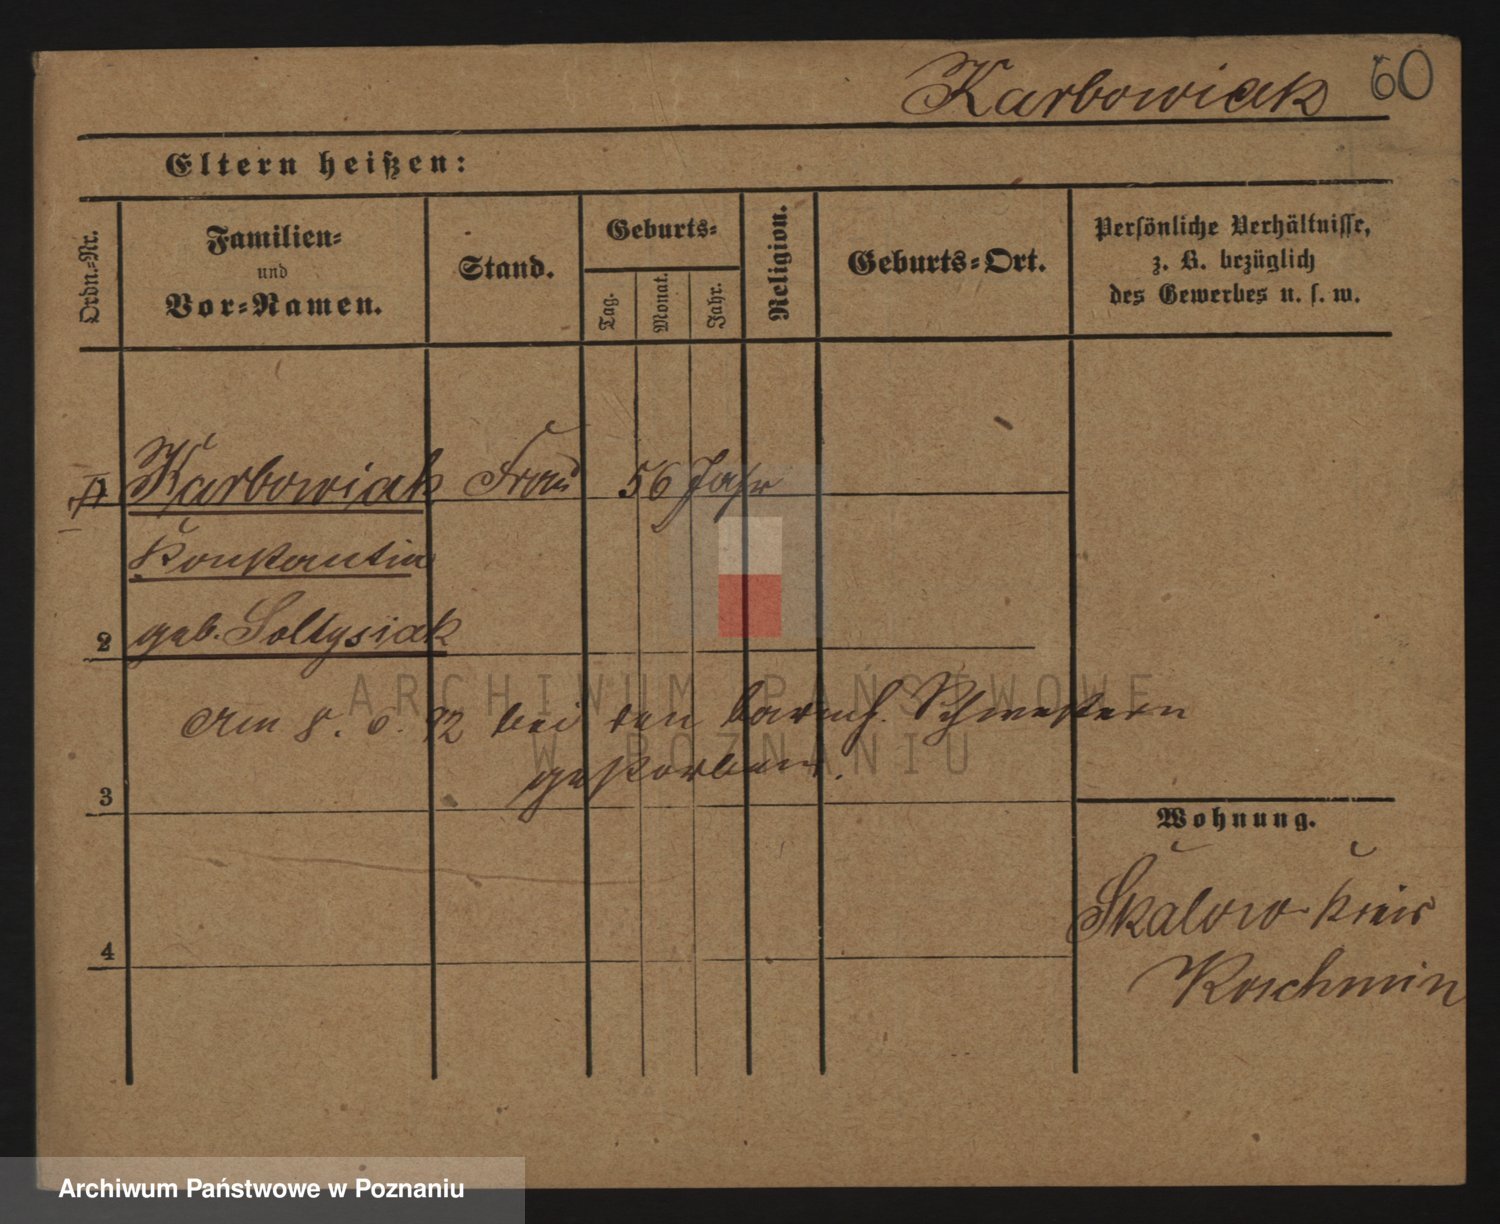 Karbowiak 60
Eltern heißen:
Ordn.-Nr.
Familien-
und
Vor-Namen.
Stand.
Geburts-
Tag.
Monat.
Jahr.
Religion.
Geburts-Ort.
Persönliche Verhältnisse,
z. B. bezüglich
des Gewerbes u. s. w.
1 Karbowiak Frau 56 Jahr
Konstantia
2 geb. Soltysiak
Am 8. 6. 92 bei den barmh. Schwestern
gestorben.
3
4
Wohnung.
Skalow Kreis
Koschmin
ARCHIWUM PAŃSTWOWE
W POZNANIU
Archiwum Państwowe w Poznaniu